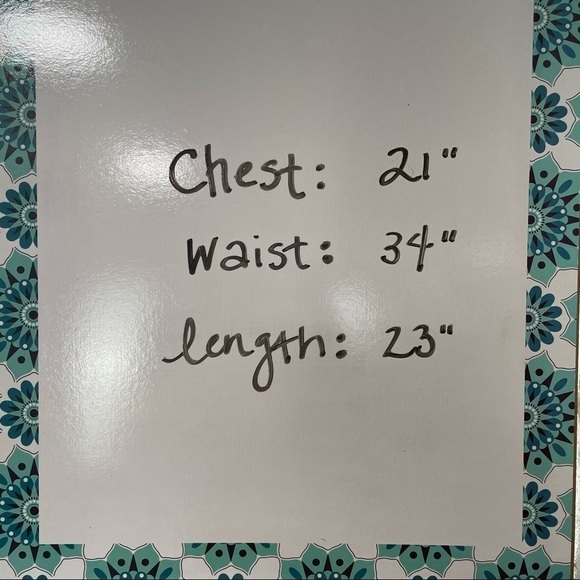 Chest: 21"
Waist: 34"
length: 23"